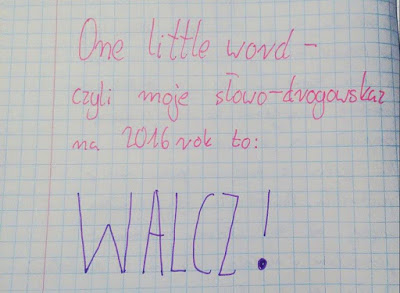 One little word -
czyli moje słowo-drogowskaz
na 2016 rok to:
WALCZ!